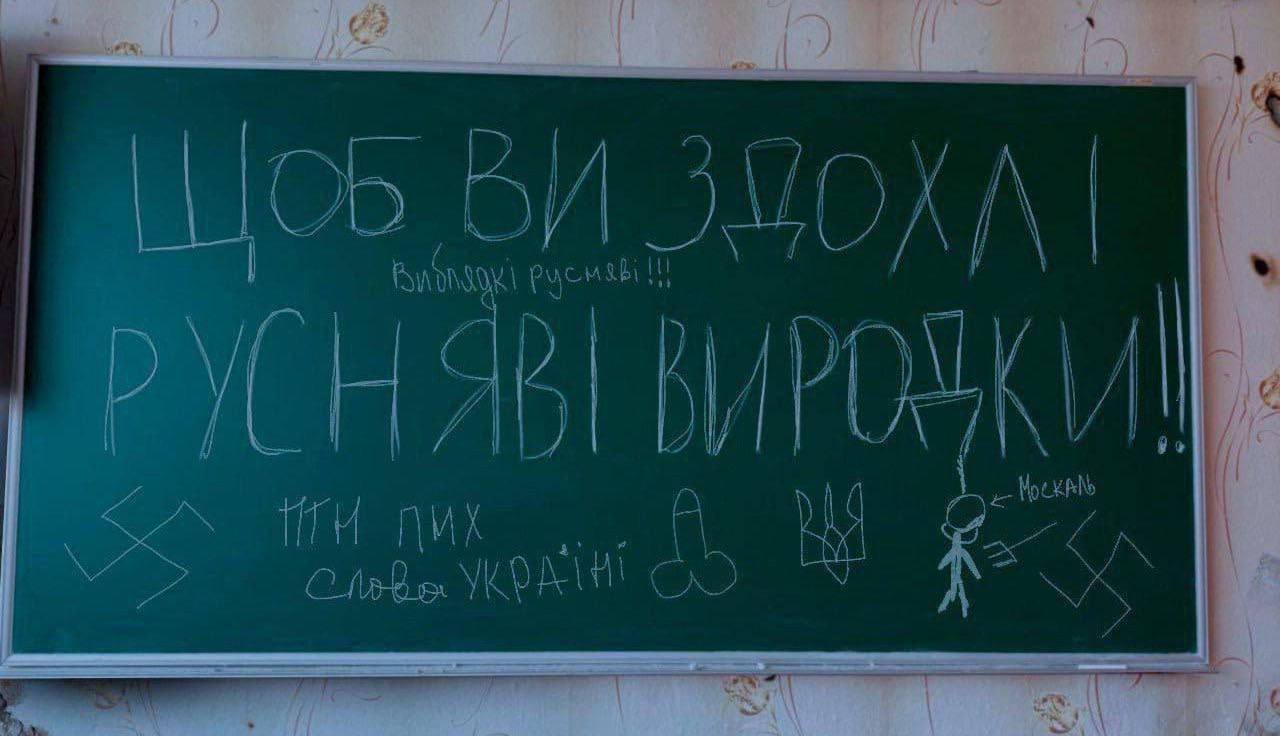 ЩОБ ВИ ЗДОХЛІ
Виблядкі русняві!!!
РУСНЯВІ ВИРОДКИ!!
ПТН ПНХ
слова УКРАЇНІ
← Москаль